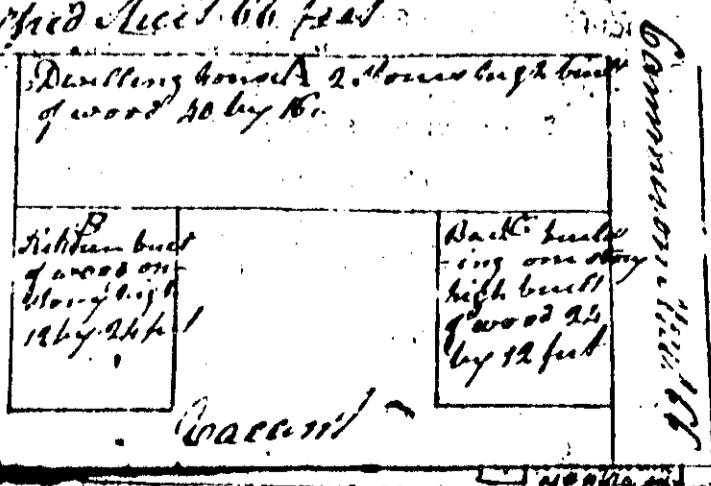 Street 66 feet
Dwelling house A 2 Stories high built
of wood 40 by 16.
B
Kitchen built
of wood one
story high
12 by 24 feet
Back C build
-ing one story
high built
of wood 24
by 12 feet
Vacant
Common 66